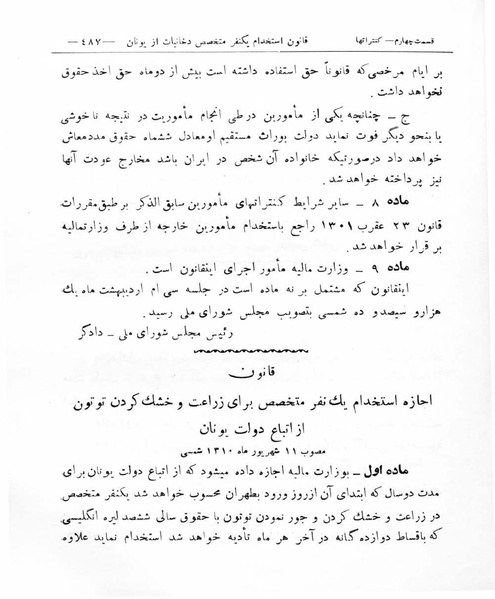 قسمت چهارم — کنتراتها   قانون استخدام یکنفر متخصص دخانیات از یونان   —۴۸۷—
بر ایام مرخصی که قانوناً حق استفاده داشته است بیش از دوماه حق اخذ حقوق
نخواهد داشت .
ج — چنانچه یکی از مأمورین درطی انجام مأموریت در نتیجه ناخوشی
یا بنحو دیگر فوت نماید دولت بوراث مستقیم اومعادل ششماه حقوق مددمعاش
خواهد داد درصورتیکه خانواده آن شخص در ایران باشد مخارج عودت آنها
نیز پرداخته خواهد شد .
ماده ۸ — سایر شرایط کنتراتهای مأمورین سابق الذکر بر طبق مقررات
قانون ۲۳ عقرب ۱۳۰۱ راجع باستخدام مأمورین خارجه از طرف وزارتمالیه
بر قرار خواهد شد .
ماده ۹ — وزارت مالیه مأمور اجرای اینقانون است .
اینقانون که مشتمل بر نه ماده است در جلسه سی ام اردیبهشت ماه یك
هزارو سیصدو ده شمسی بتصویب مجلس شورای ملی رسید .
رئیس مجلس شورای ملی — دادگر
قانون
اجازه استخدام یك نفر متخصص برای زراعت و خشك کردن توتون
از اتباع دولت یونان
مصوب ۱۱ شهریور ماه ۱۳۱۰ شمسی
ماده اول — بوزارت مالیه اجازه داده میشود که از اتباع دولت یونان برای
مدت دوسال که ابتدای آن ازروز ورود بطهران محسوب خواهد شد یکنفر متخصص
در زراعت و خشك کردن و جور نمودن توتون با حقوق سالی ششصد لیره انگلیسی
که باقساط دوازده گانه در آخر هر ماه تأدیه خواهد شد استخدام نماید علاوه